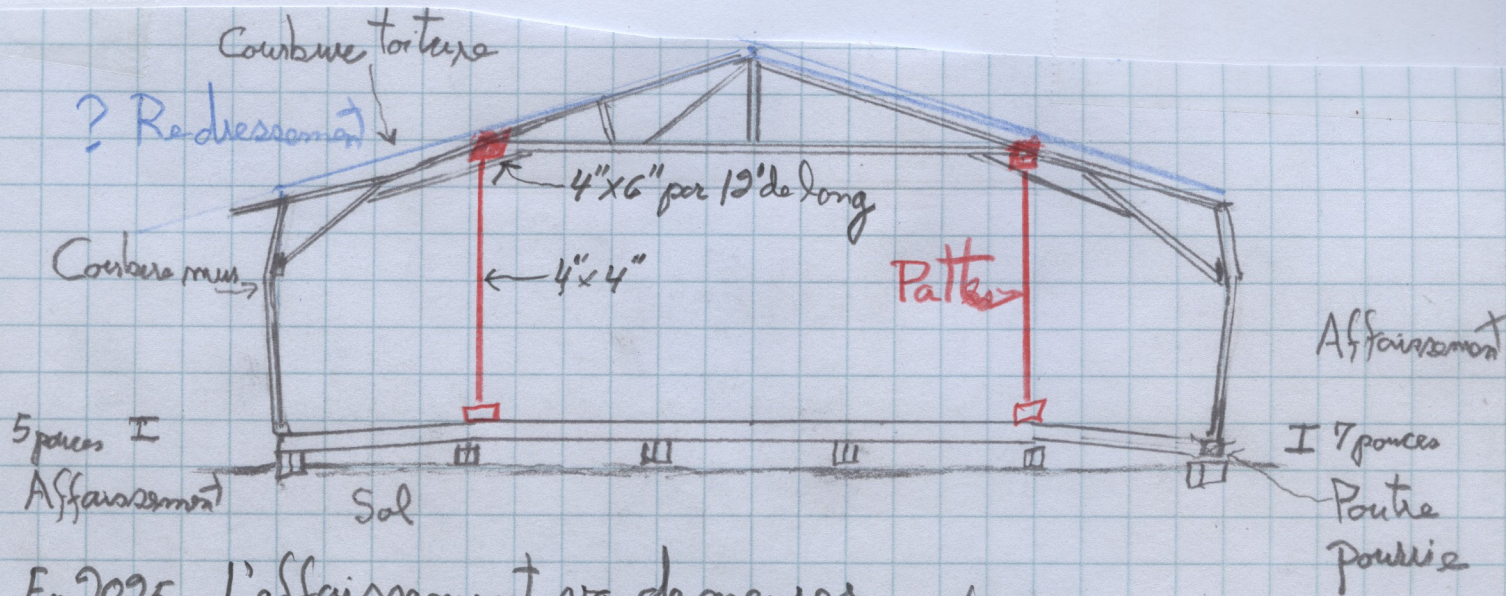 Courbure toiture
? Redressement
4"x6" par 12' de long
Courbure murs
4"x4"
Patte
Affaissement
5 pouces I
Affaissement
Sol
I 7 pouces
Poutre
pourrie
En 2025 L'affaissement